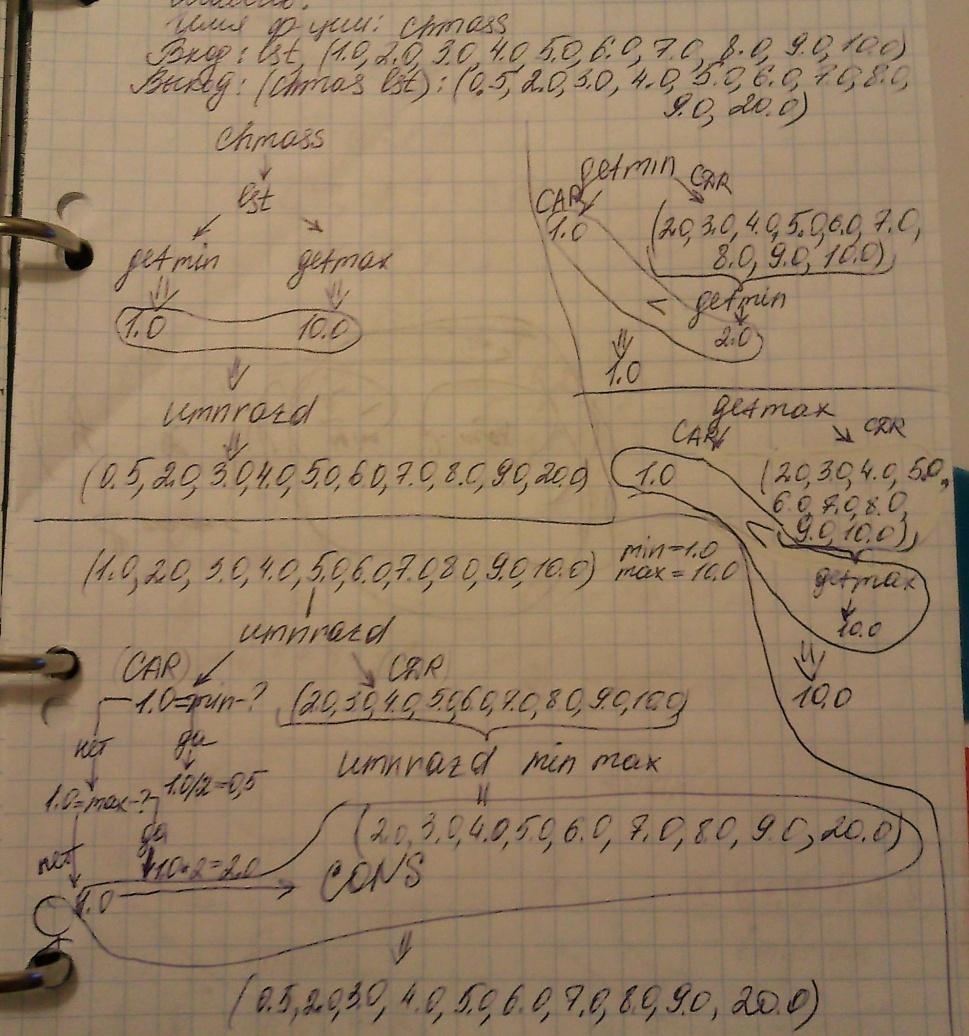 Имя функции: chmass
Вход: lst, (1.0, 2.0, 3.0, 4.0, 5.0, 6.0, 7.0, 8.0, 9.0, 10.0)
Выход: (chmas lst): (0.5, 2.0, 3.0, 4.0, 5.0, 6.0, 7.0, 8.0,
9.0, 20.0)
chmass
lst
getmin getmax
1.0 10.0
umnrazd
(0.5, 2.0, 3.0, 4.0, 5.0, 6.0, 7.0, 8.0, 9.0, 20.0)
getmin
CAR CDR
1.0 (2.0, 3.0, 4.0, 5.0, 6.0, 7.0,
8.0, 9.0, 10.0)
< getmin
2.0
1.0
getmax
CAR CDR
1.0 (2.0, 3.0, 4.0, 5.0,
6.0, 7.0, 8.0,
9.0, 10.0)
<
getmax
10.0
10.0
(1.0, 2.0, 3.0, 4.0, 5.0, 6.0, 7.0, 8.0, 9.0, 10.0) min=1.0
max=10.0
umnrazd
(CAR) CDR
1.0=min-? (2.0, 3.0, 4.0, 5.0, 6.0, 7.0, 8.0, 9.0, 10.0)
нет да
umnrazd min max
1.0=max-? 1.0/2=0,5
(2.0, 3.0, 4.0, 5.0, 6.0, 7.0, 8.0, 9.0, 20.0)
нет да 1.0*2=2.0
1.0 CONS
(0.5, 2.0, 3.0, 4.0, 5.0, 6.0, 7.0, 8.0, 9.0, 20.0)